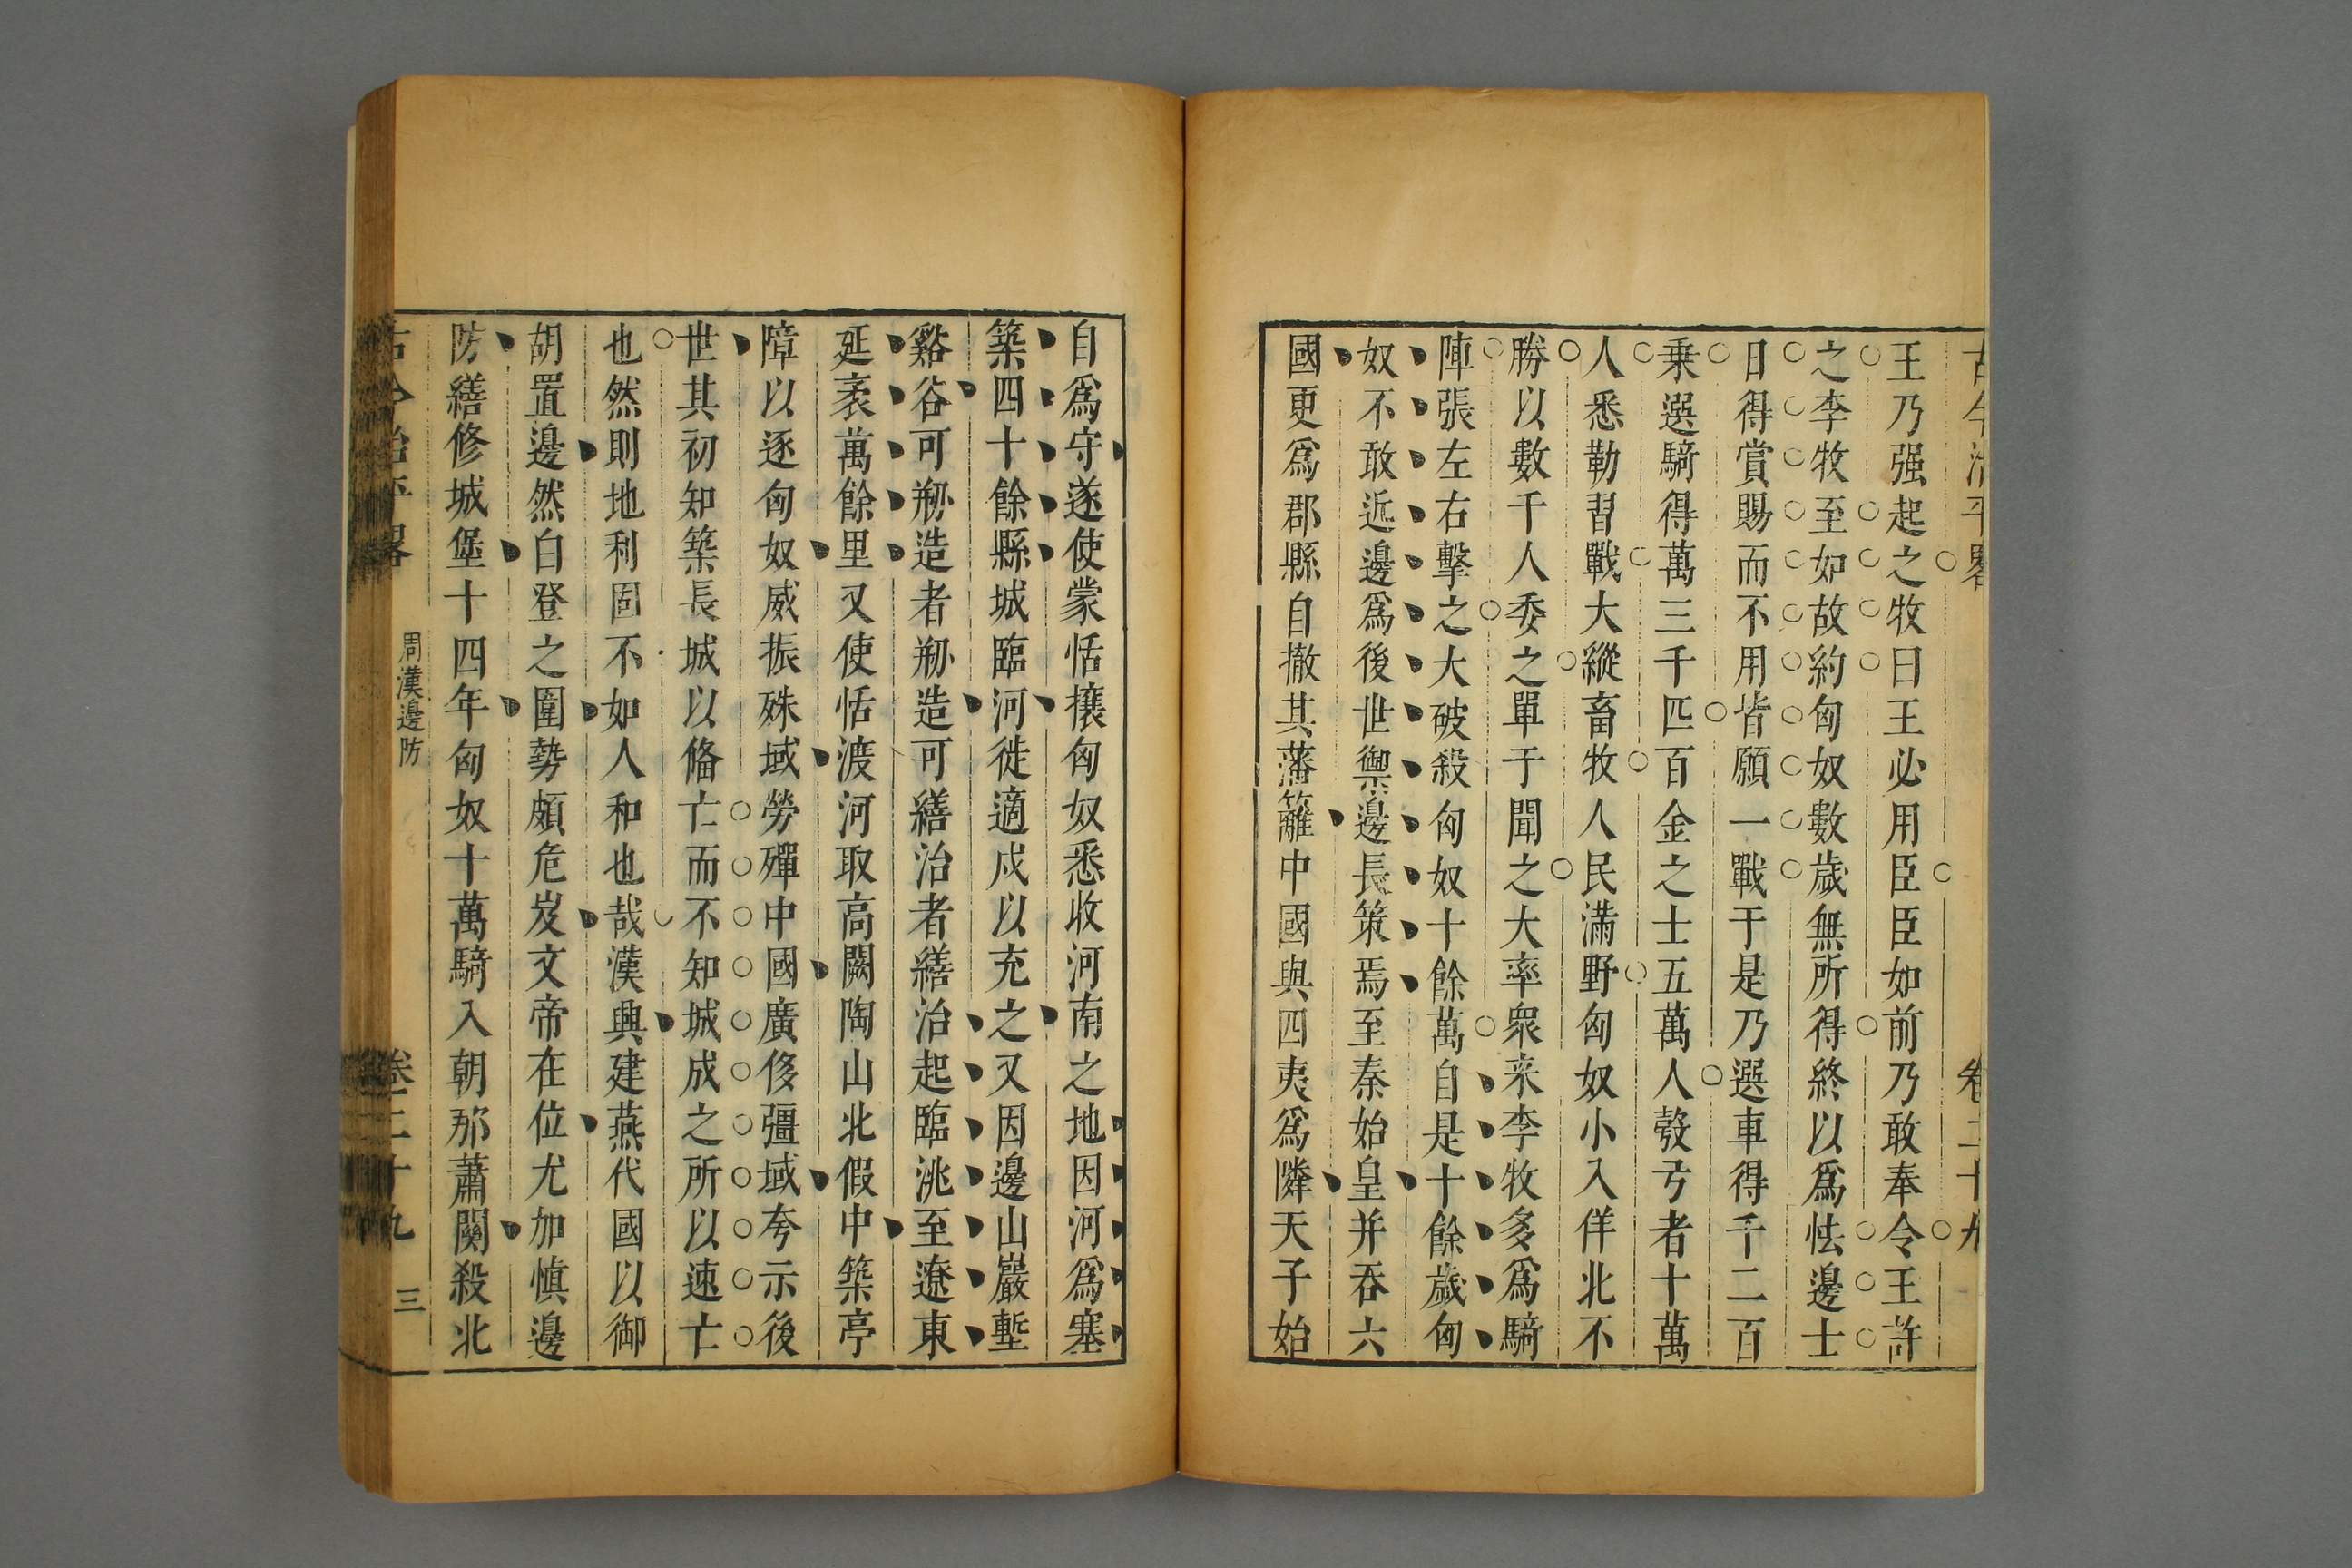 古今治平畧 卷二十九
王乃强起之牧曰王必用臣臣如前乃敢奉令王許
之李牧至如故約匈奴數歲無所得終以爲怯邊士
日得賞賜而不用皆願一戰于是乃選車得千二百
乗選騎得萬三千匹百金之士五萬人彀弓者十萬
人悉勒習戰大縱畜牧人民滿野匈奴小入佯北不
勝以數千人委之單于聞之大率衆来李牧多爲騎
陣張左右擊之大破殺匈奴十餘萬自是十餘歲匈
奴不敢近邊爲後世禦邊長策焉至秦始皇并吞六
國更爲郡縣自撤其藩籬中國與四夷爲隣天子始
自爲守遂使蒙恬攘匈奴悉收河南之地因河爲塞
築四十餘縣城臨河徙適戍以充之又因邊山巖塹
谿谷可刱造者刱造可繕治者繕治起臨洮至遼東
延袤萬餘里又使恬渡河取高闕陶山北假中築亭
障以逐匈奴威振殊域勞殫中國廣侈彊域夸示後
世其初知築長城以偹亡而不知城成之所以速亡
也然則地利固不如人和也哉漢興建燕代國以御
胡置邊然白登之圍勢頗危岌文帝在位尤加慎邊
防繕修城堡十四年匈奴十萬騎入朝那蕭關殺北
古今治平畧 周漢邊防 卷二十九 三